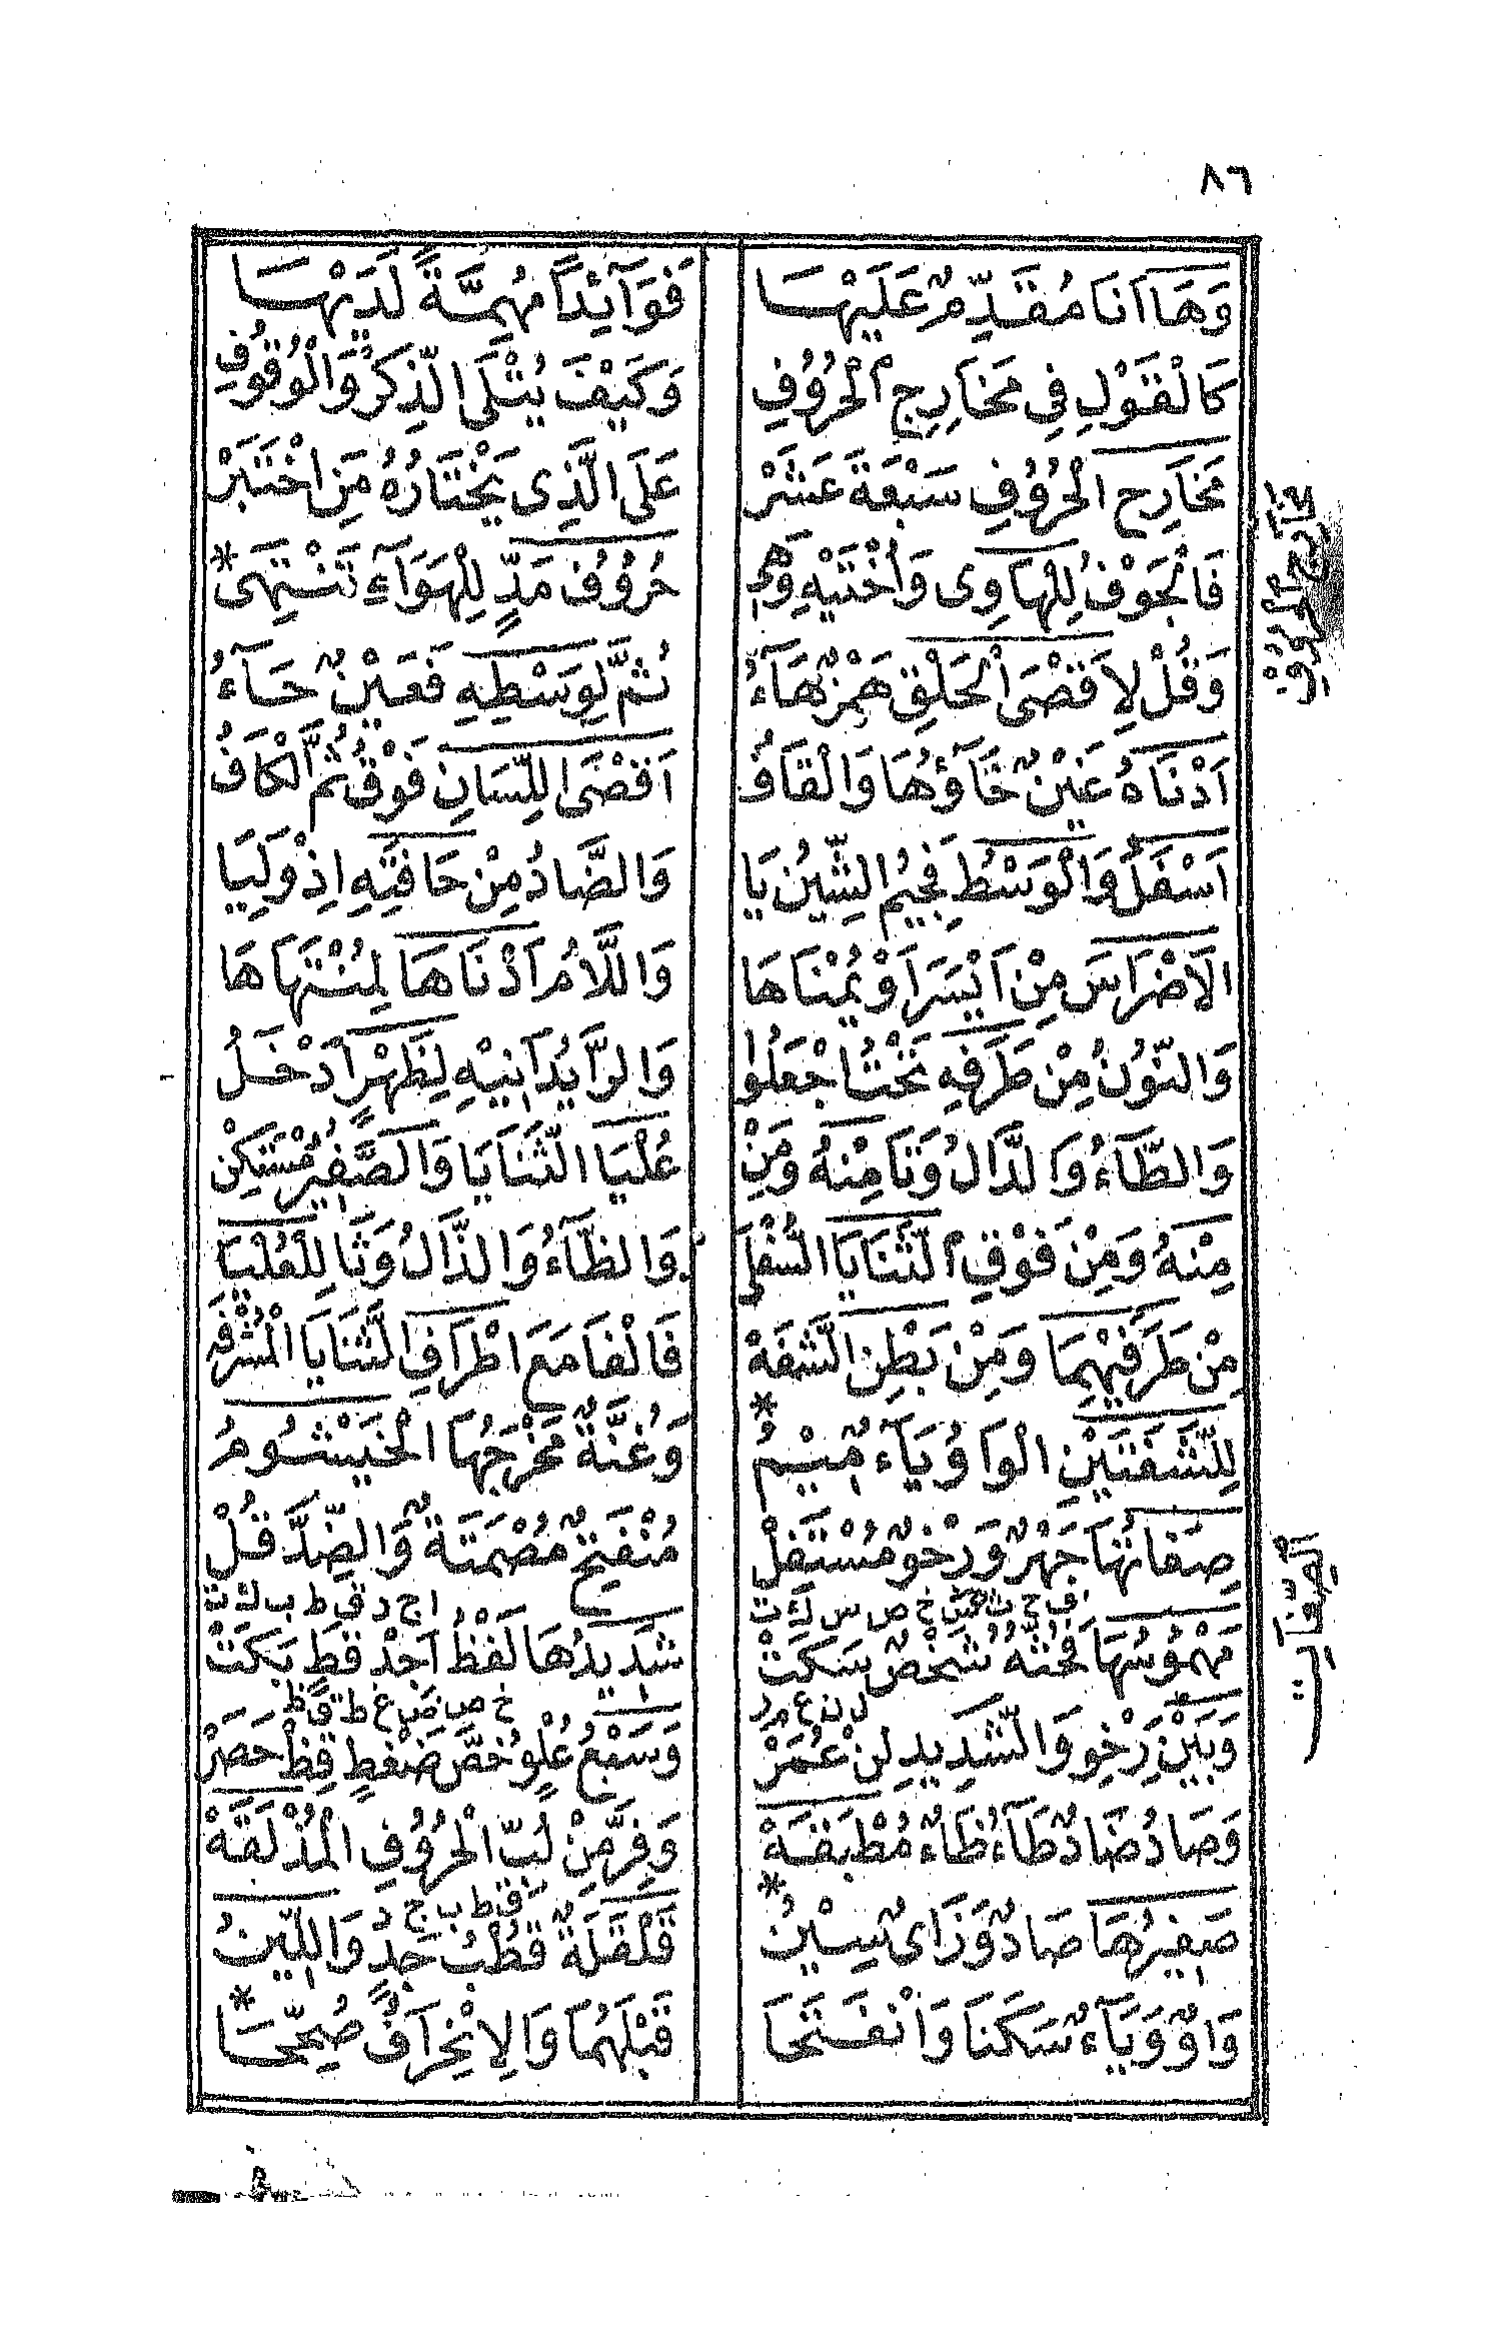 ٨٦
وَهَا اَنَا مُقَدِّمٌ عَلَيْهَا فَوَآئِدًا مُهِمَّةً لَدَيْهَا
كَالْقَوْلِ فِي مَخَارِجِ الْحُرُوفِ وَكَيْفَ يُتْلَى الذِّكْرُ وَالْوُقُوفِ
مَخَارِجُ الْحُرُوفِ سَبْعَةَ عَشَرْ عَلَى الَّذِى يَخْتَارُهُ مَنِ اخْتَبَرْ
مخارج الحروف
فَالْجَوْفُ لِلْهَاوِى وَاُخْتَيْهِ وَهِىْ حُرُوْفُ مَدٍّ لِلْهَوَآءِ تَنْتَهِى *
وَقُلْ لِاَقْصَى الْحَلْقِ هَمْزٌ هَآءُ ثُمَّ لِوَسْطِهِ فَعَيْنٌ حَآءُ
اَدْنَاهُ غَيْنٌ خَآؤُهَا وَالْقَافُ اَقْصَى اللِّسَانِ فَوْقُ ثُمَّ الْكَافُ
اَسْفَلُ وَالْوَسْطُ فَجِيْمُ الشِّيْنُ يَا وَالضَّادُ مِنْ حَافَتِهِ اِذْ وَلِيَا
الَاضْرَاسَ مِنْ اَيْسَرَ اَوْ يُمْنَاهَا وَاللَّامُ اَدْنَاهَا لِمُنْتَهَاهَا
وَالنُّوْنُ مِنْ طَرَفِهِ تَحْتُ اجْعَلُوا وَالرَّا يُدَانِيْهِ لِظَهْرٍ اَدْخَلُ
وَالطَّآءُ وَالدَّالُ وَتَا مِنْهُ وَمِنْ عُلْيَا الثَّنَايَا وَالصَّفِيْرُ مُسْتَكِنْ
مِنْهُ وَمِنْ فَوْقِ الثَّنَايَا السُّفْلَى وَالظَّآءُ وَالذَّالُ وَثَا لِلْعُلْيَا
مِنْ طَرَفَيْهِمَا وَمِنْ بَطْنِ الشَّفَةْ فَالْفَا مَعَ اطْرَافِ الثَّنَايَا الْمُشْرِفَهْ
لِلشَّفَتَيْنِ الْوَاوُ يَآءٌ مِيْمُ * وَغُنَّةٌ مَخْرَجُهَا الْخَيْشُوْمُ
صِفَاتُهَا جَهْرٌ وَرِخْوٌ مُسْتَفِلْ مُنْفَتِحٌ مُصْمَتَةٌ وَالضِّدَّ قُلْ
ف ح ث ه ش خ ص س ك ت ا ج د ق ط ب ك ت
مَهْمُوْسُهَا فَحَثَّهُ شَخْصٌ سَكَتْ شَدِيْدُهَا لَفْظُ اَجِدْ قَطٍ بَكَتْ
ل ن ع م ر خ ص ض غ ط ق ظ
وَبَيْنَ رِخْوٍ وَالشَّدِيدِ لِنْ عُمَرْ وَسَبْعُ عُلْوٍ خُصَّ ضَغْطٍ قِظْ حَصَرْ
وَصَادُ ضَادٌ طَآءُ ظَاءٌ مُطْبَقَهْ وَفِرَّ مِنْ لُبِّ الْحُرُوْفِ الْمُذْلَقَهْ
* ق ط ب ج د
صَفِيْرُهَا صَادٌ وَزَاىٌ سِيْنُ قَلْقَلَةٌ قُطْبُ جَدٍّ وَاللِّيْنُ
وَاوٌ وَيَآءٌ سَكَنَا وَانْفَتَحَا قَبْلَهُمَا وَالِانْحِرَافُ صُحِّحَا *